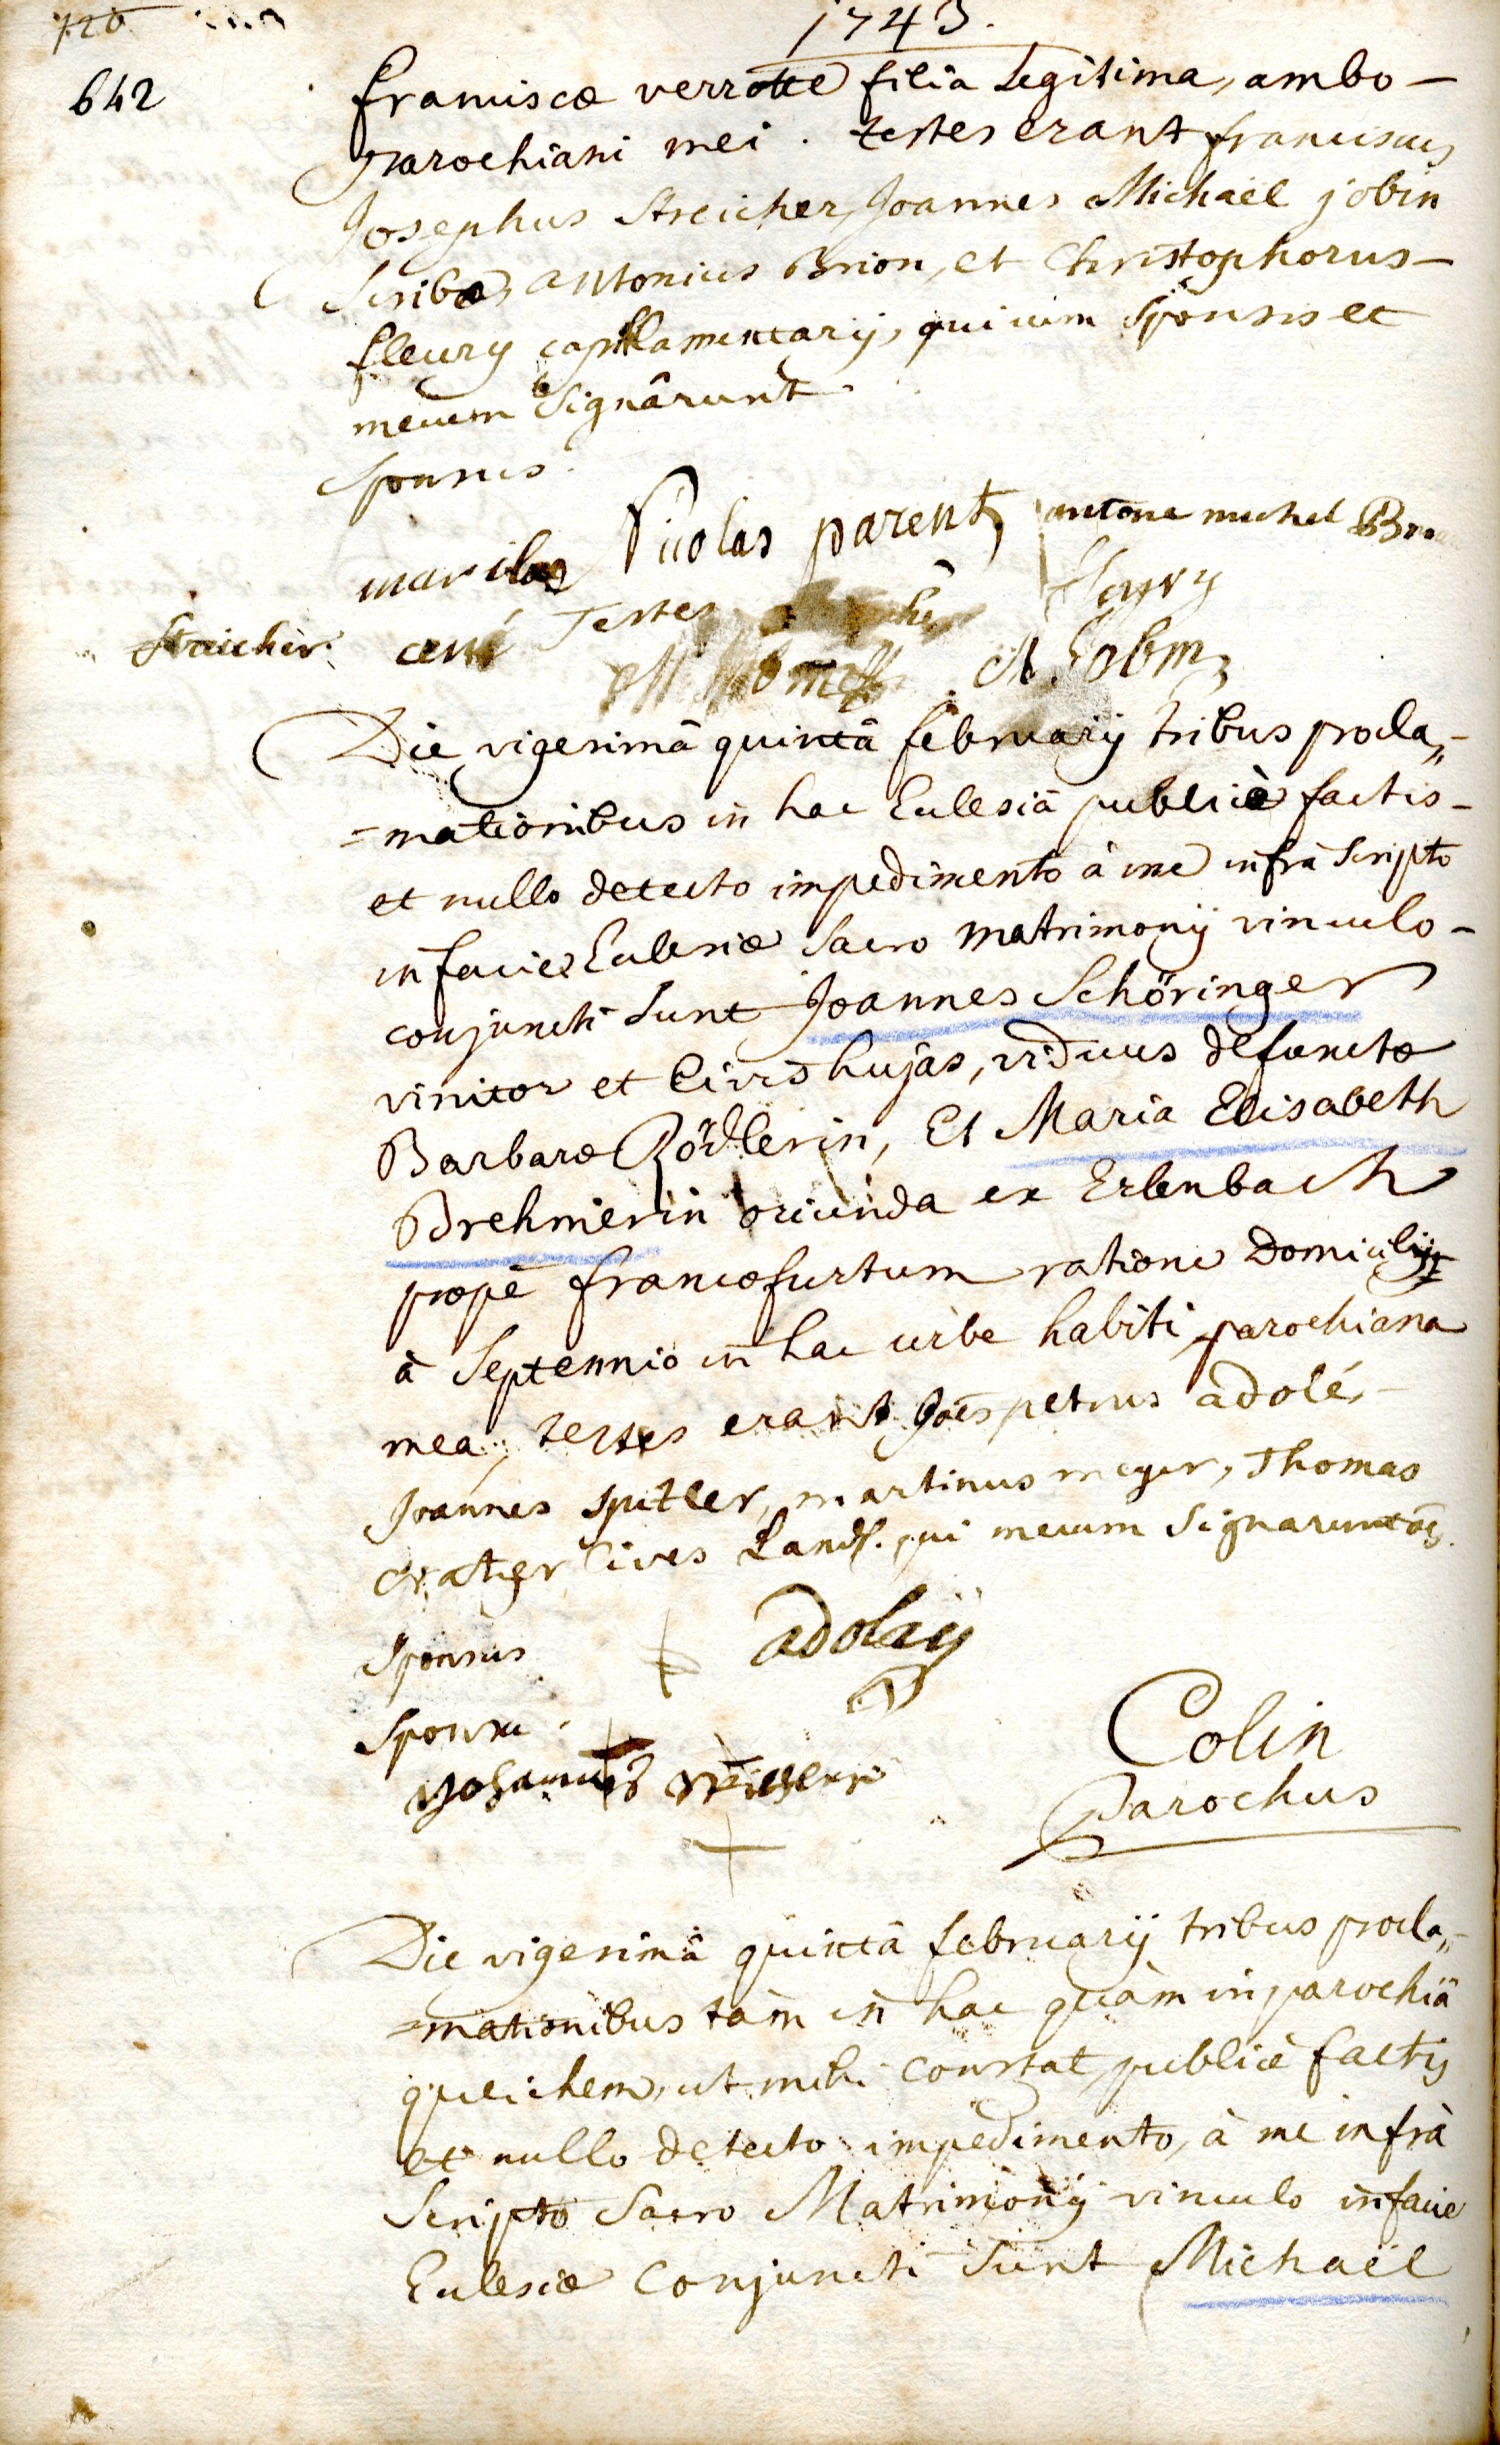 1743.
642
franciscæ verrotte filia Legitima, ambo -
parochiani mei. testes erant franciscus
Josephus Streicher, Joannes Michaël jobin
Scribæ, antonius Brion, et Christophorus -
fleury capillamentarij, qui cum sponsis et
mecum Signârunt
Sponsus
Nicolas parent antone michel
Testes
Streicher
Die vigesimâ quintâ februarij tribus procla„
=mationibus in hac Ecclesiâ publicè factis -
et nullo detecto impedimento à me infrà Scripto
in facie Ecclesiæ Sacro matrimonij vinculo -
conjuncti Sunt Joannes Schöringer
vinitor et Civis hujas, viduus defunctæ
Barbaræ Rödlerin, Et Maria Elisabeth
Brehmerin oriunda ex Erlenbach
propè francofurtum ratione Domicilij
à Septennio in hac urbe habiti parochiana
mea, testes erant Joes petrus adolé, -
Joannes Spitler, martinus meyer, Thomas
crather Cives Land. qui mecum Signarunt
Sponsus adolaÿ
Sponsa
Colin
Parochus
Die vigesimâ quintâ februarij tribus procla„
=mationibus tàm in hac quàm in parochiâ
queichem, ut mihi constat, publicè factis
et nullo detecto impedimento, à me infrà
Scripto Sacro Matrimonij vinculo in facie
Ecclesiæ Conjuncti Sunt Michaël